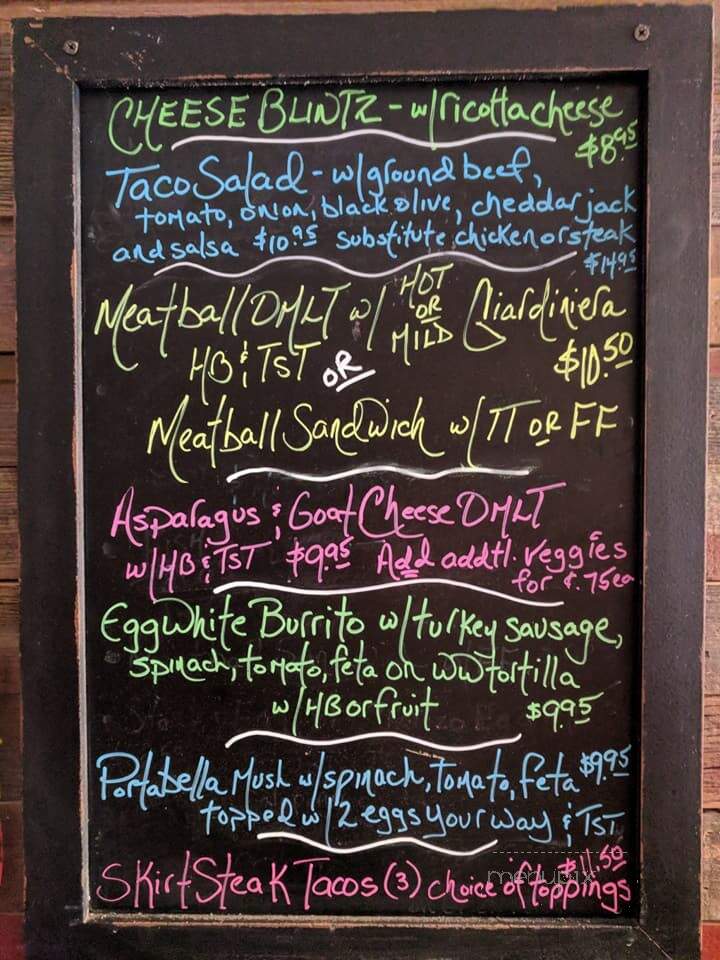 CHEESE BLINTZ - w/ricotta cheese
$8.95
Taco Salad - w/ground beef,
tomato, onion, black olive, cheddar jack
and salsa $10.95 substitute chicken or steak
$14.95
Meatball OMLT w/ HOT OR MILD Giardiniera
HB & TST OR $10.50
Meatball Sandwich w/ TT OR FF
Asparagus & Goat Cheese OMLT
w/HB & TST $9.95 Add addtl. veggies
for ¢.75ea
Egg White Burrito w/turkey sausage,
spinach, tomato, feta on ww tortilla
w/HB or fruit $9.95
Portabella Mush w/spinach, tomato, feta $9.95
topped w/2 eggs your way & TST
$11.50
Skirt Steak Tacos (3) choice of toppings
menupix